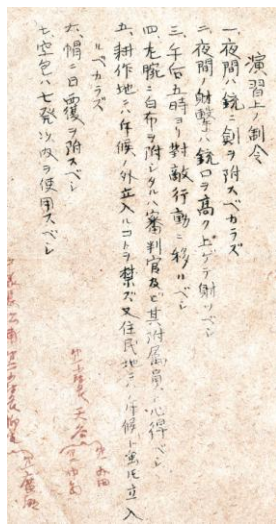 演習上ノ制令
一、夜間ハ銃ニ剣ヲ附スベカラズ
二、夜間ノ射撃ハ銃口ヲ高ク上ゲテ射ツベシ
三、午后五時ヨリ對敵行動ニ移ルベシ
四、左腕ニ白布ヲ附シタルハ審判官及ビ其附属員ト心得ベシ
五、耕作地ニハ斥候ノ外立入ルコトヲ禁ズ又住民地ニハ斥候ト雖モ立入
ルベカラズ
六、帽ニ日覆ヲ附スベシ
七、空包ハ七発以内ヲ使用スベシ